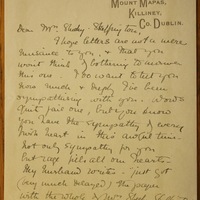 MOUNT MAPAS,
KILLINEY,
CO. DUBLIN.
Dear Mrs. Sheehy Skeffington,
These letters are not a mere
nuisance to you, & that you
won't think I'm bothering to answer
this one. I so want to tell you
how much & deeply I've been
sympathising with you. Words
quite fail one, but you know
you have the sympathy of every
Irish heart in this awful time.
Not only sympathy for you
but rage fills all our hearts.
My husband wrote - just got
(very much delayed) the papers
with the whole of